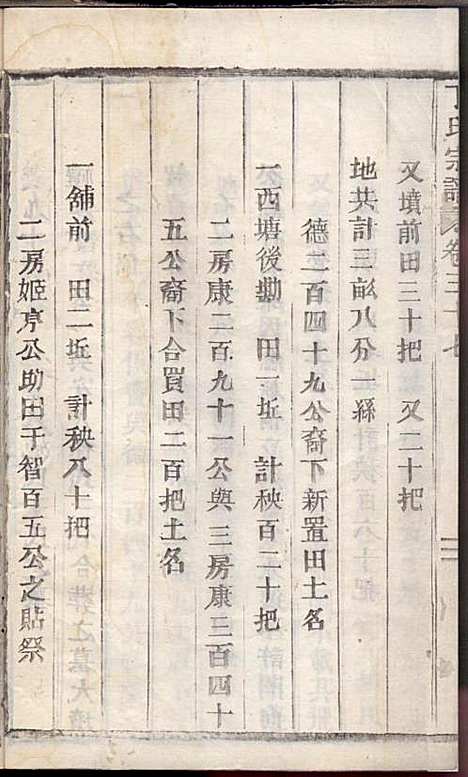 丁氏宗譜 卷三十七
又墳前田三十把 又二十把
地共計三畝八分一絲
德二百四十九公裔下新置田土名
一西塘後塍 田一坵 計秧百二十把
二房康二百九十一公與三房康三百四十
五公裔下合買田二百把土名
一舖前 田二坵 計秧八十把
二房姬亨公助田于智百五公之貼祭